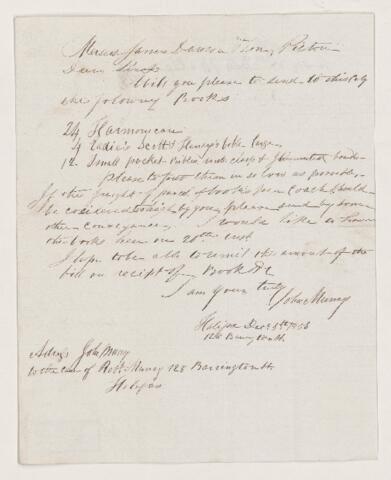 Messrs James Dawson & Sons, Pictou
Dear Sirs
Will you please to send to this City
the following Books
24 Harmonicon
4 Scott's Henry's bible large
12 Small pocket Bibles with clasp &
please to put them in as low as possible,
If the freight of parcel of books per Coach should
be considered by you, please send by some
other conveyance, I would like to have
the books here on 20th inst
I hope to be able to remit the amount of the
bill on receipt of Books &c
I am yours truly
John Murray
Halifax Decr 8th
128 Barrington St
Address John Murray
to the care of Robt Murray 128 Barrington St
Halifax